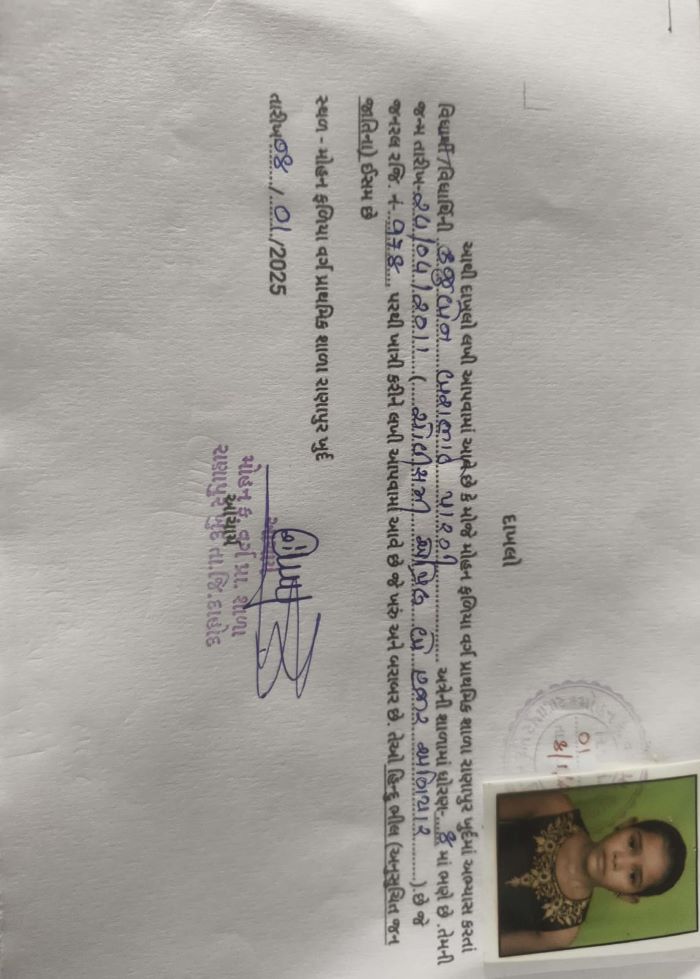 દાખલો
આથી દાખલો લખી આપવામાં આવે છે કે મોજે મોહન ફળિયા વર્ગ પ્રાથમિક શાળા રાણાપુર ખુર્દમાં અભ્યાસ કરતાં
વિદ્યાર્થી/વિદ્યાર્થિની અત્રેની શાળામાં ધોરણ- માં ભણે છે .તેમની
જન્મ તારીખ- 24/04/2011 ( હજાર અગિયાર ).છે જે
જનરલ રજિ. નં- ૧૩૪ પરથી ખાત્રી કરીને લખી આપવામાં આવે છે જે ખરું અને બરાબર છે. તેઓ હિન્દુ ભીલ (અનુસુચિત જન
જાતિના) ઈસમ છે
સ્થળ - મોહન ફળિયા વર્ગ પ્રાથમિક શાળા રાણાપુર ખુર્દ
તારીખ 08/01/2025
આચાર્ય
મોહન ફ. વર્ગ પ્રા. શાળા
રાણાપુર ખુર્દ તા.જિ.દાહોદ